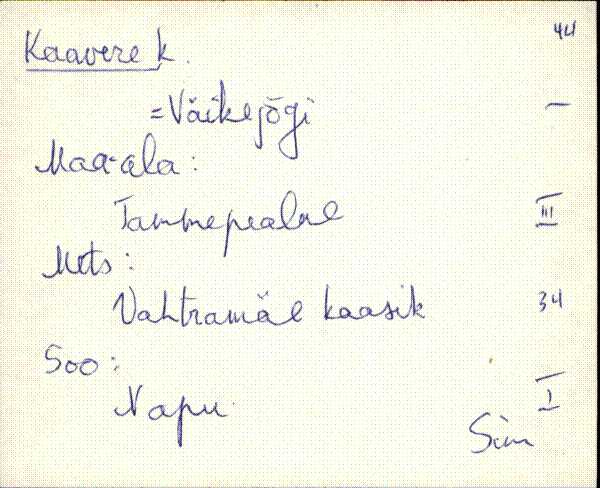 44
Kaavere k.
= Väikejõgi —
Maa-ala:
Tammepealne III
Mets:
Vahtramäe kaasik 34
Soo:
Napu I
Sim